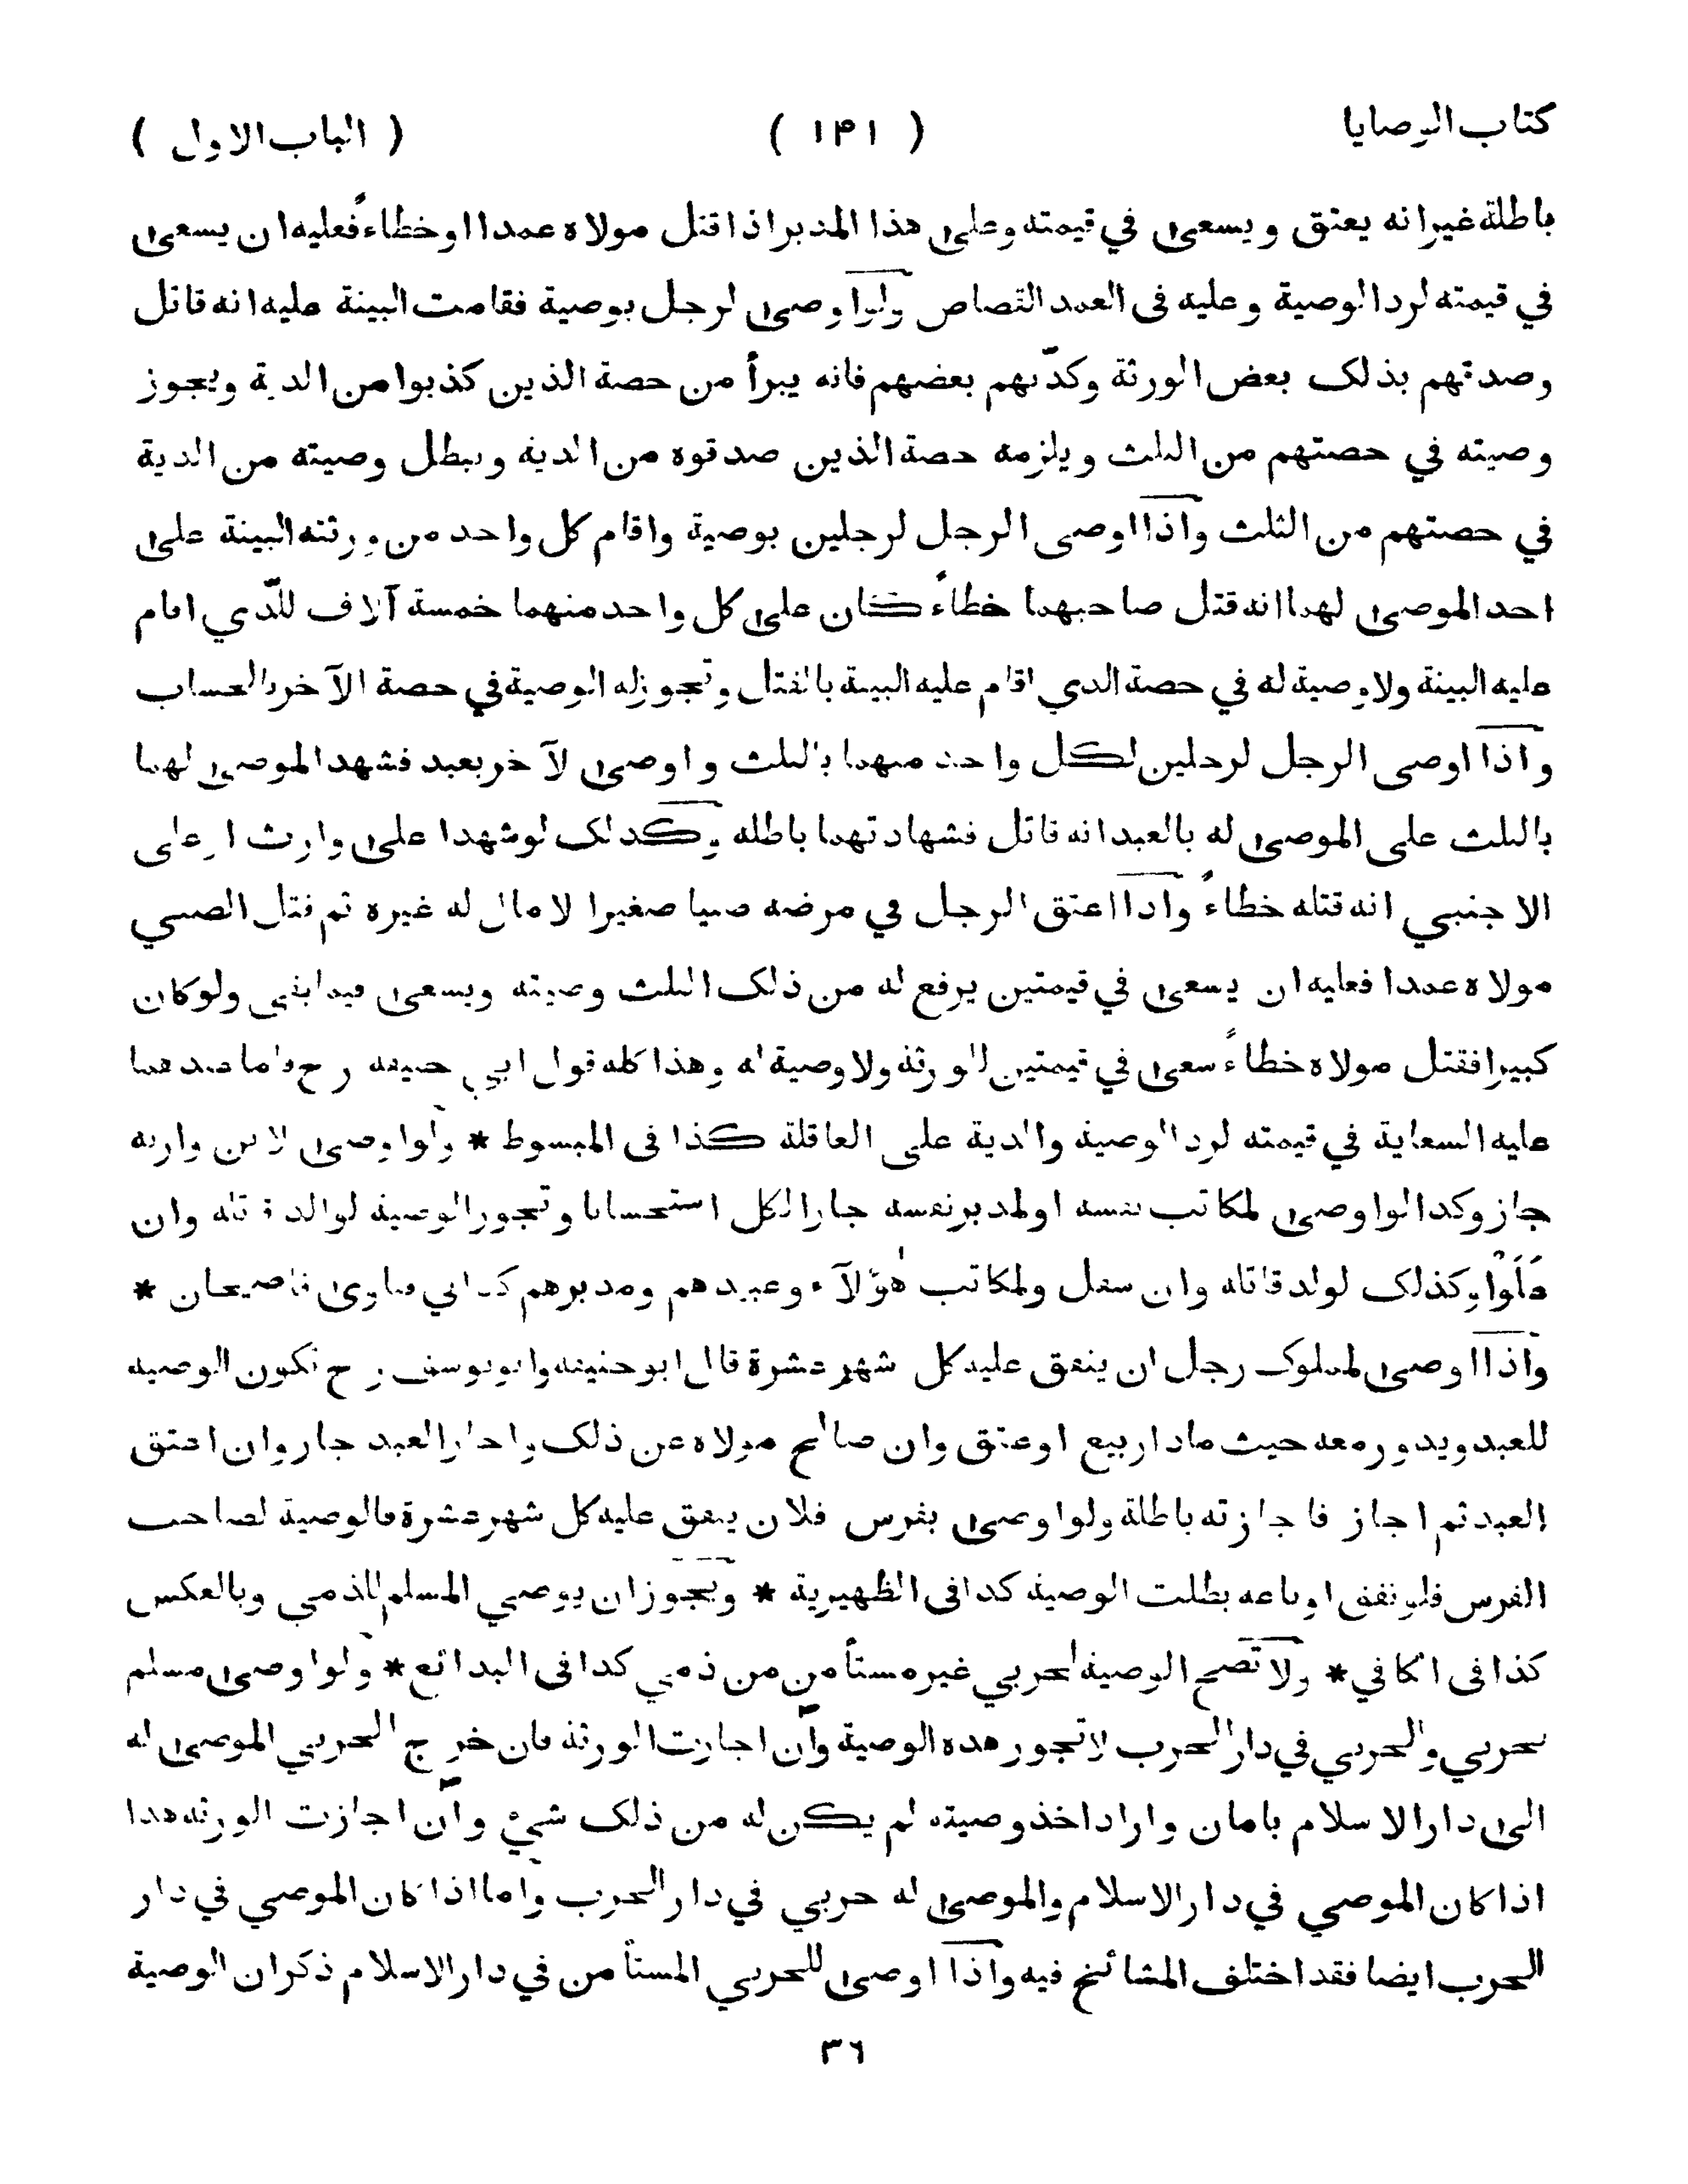 كتاب الوصايا ( ١٤١ ) ( الباب الاول )
باطلة غير انه يعتق ويسعى في قيمته وعلى هذا المدبر اذا قتل مولاه عمدا او خطاءً فعليه ان يسعى
في قيمته لرد الوصية وعليه فى العمد القصاص ولو اوصى لرجل بوصية فقامت البينة عليه انه قاتل
وصدقهم بذلك بعض الورثة وكذّبهم بعضهم فانه يبرأ من حصة الذين كذبوا من الدية ويجوز
وصيته في حصتهم من الثلث ويلزمه حصة الذين صدقوه من الدية ويبطل وصيته من الدية
في حصتهم من الثلث واذا اوصى الرجل لرجلين بوصية واقام كل واحد من ورثته البينة على
احد الموصى لهما انه قتل صاحبهما خطاءً كان على كل واحد منهما خمسة آلاف للّذي اقام
عليه البينة ولا وصية له في حصة الذي اقام عليه البينة بالقتل وتجوز له الوصية في حصة الآخر بالحساب
واذا اوصى الرجل لرجلين لكل واحد منهما بالثلث واوصى لآخر بعبد فشهد الموصى لهما
بالثلث على الموصى له بالعبد انه قاتل فشهادتهما باطلة وكذلك لو شهدا على وارث او على
الاجنبي انه قتله خطاءً واذا اعتق الرجل في مرضه صبيا صغيرا لا مال له غيره ثم قتل الصبي
مولاه عمدا فعليه ان يسعى في قيمتين يرفع له من ذلك الثلث وصيته ويسعى فيما بقي ولو كان
كبيرا فقتل مولاه خطاءً سعى في قيمتين للورثة ولا وصية له وهذا كله قول ابي حنيفة رح واما عندهما
عليه السعاية في قيمته لرد الوصية والدية على العاقلة كذا فى المبسوط * ولو اوصى لابن وارثه
جاز وكذا لو اوصى لمكاتب نفسه او لمدبر نفسه جاز الكل استحسانا وتجوز الوصية لوالد قاتله وان
عَلَوْا وكذلك لولد قاتله وان سفل ولمكاتب هؤلاء وعبيدهم ومدبرهم كذا في فتاوى قاضيخان *
واذا اوصى لمملوك رجل ان ينفق عليه كل شهر عشرة قال ابو حنيفة وابو يوسف رح تكون الوصية
للعبد ويدور معه حيث مادار بيع او عتق وان صالح مولاه عن ذلك واجاز العبد جاز وان اعتق
العبد ثم اجاز فاجازته باطلة ولو اوصى بفرس فلان ينفق عليه كل شهر عشرة فالوصية لصاحب
الفرس فلو نفق او باعه بطلت الوصية كذا فى الظهيرية * ويجوز ان يوصي المسلم للذمي وبالعكس
كذا فى الكافي * ولا تصح الوصية لحربي غير مستأمن من ذمي كذا فى البدائع * ولو اوصى مسلم
لحربي والحربي في دار الحرب لا تجوز هذه الوصية وان اجازت الورثة فان خرج الحربي الموصى له
الى دار الاسلام بامان واراد اخذ وصيته لم يكن له من ذلك شيئ وان اجازت الورثة هذا
اذا كان الموصي في دار الاسلام والموصى له حربي في دار الحرب واما اذا كان الموصي في دار
الحرب ايضا فقد اختلف المشائخ فيه واذا اوصى للحربي المستأمن في دار الاسلام ذكر ان الوصية
٣٦